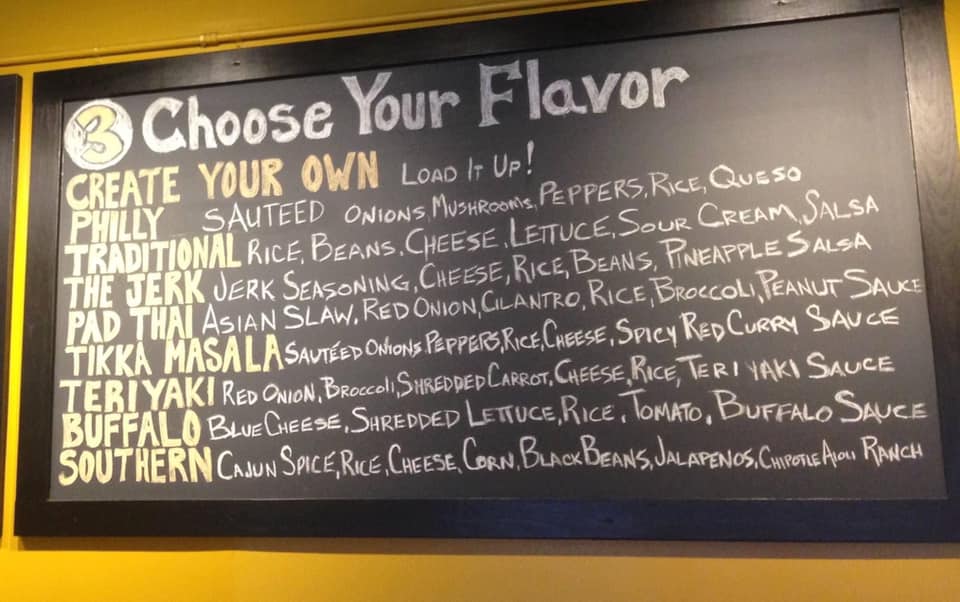 3 Choose Your Flavor
CREATE YOUR OWN LOAD IT UP!
PHILLY SAUTEED ONIONS, MUSHROOMS, PEPPERS, RICE, QUESO
TRADITIONAL RICE, BEANS, CHEESE, LETTUCE, SOUR CREAM, SALSA
THE JERK JERK SEASONING, CHEESE, RICE, BEANS, PINEAPPLE SALSA
PAD THAI ASIAN SLAW, RED ONION, CILANTRO, RICE, BROCCOLI, PEANUT SAUCE
TIKKA MASALA SAUTÉED ONIONS, PEPPERS, RICE, CHEESE, SPICY RED CURRY SAUCE
TERIYAKI RED ONION, BROCCOLI, SHREDDED CARROT, CHEESE, RICE, TERIYAKI SAUCE
BUFFALO BLUE CHEESE, SHREDDED LETTUCE, RICE, TOMATO, BUFFALO SAUCE
SOUTHERN CAJUN SPICE, RICE, CHEESE, CORN, BLACK BEANS, JALAPENOS, CHIPOTLE AIOLI RANCH